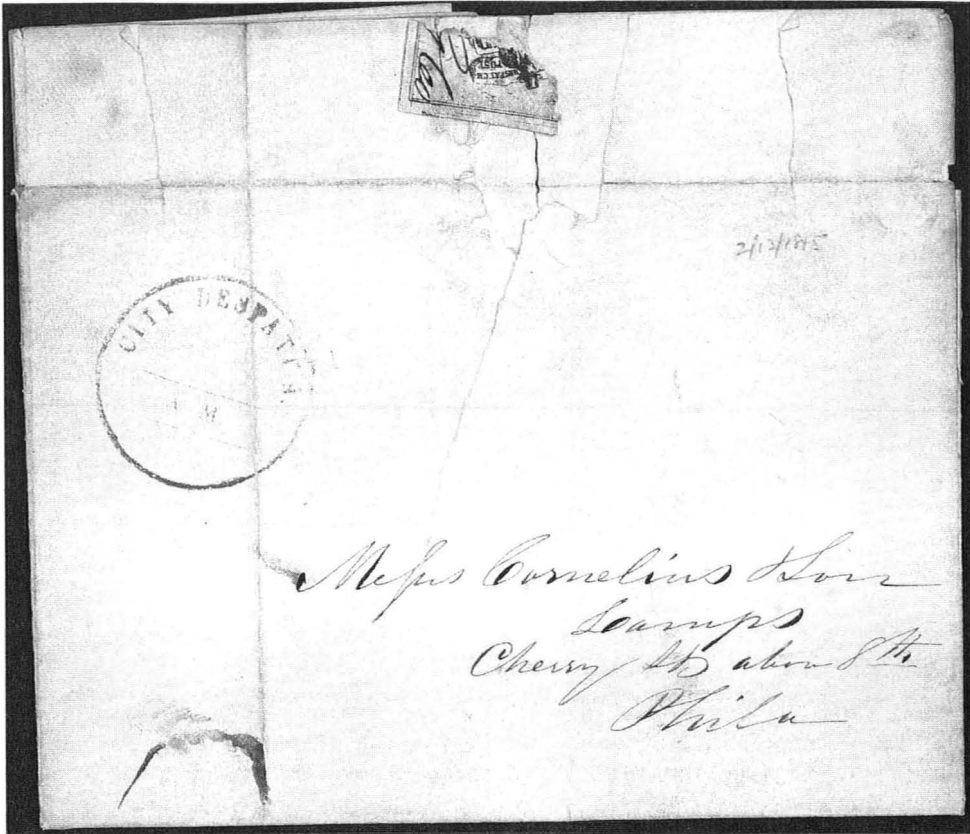 DESPATCH
POST
2/12/1845
CITY DESPATCH
Messrs Cornelius & Son
Lamps
Cherry St above 8th
Phila